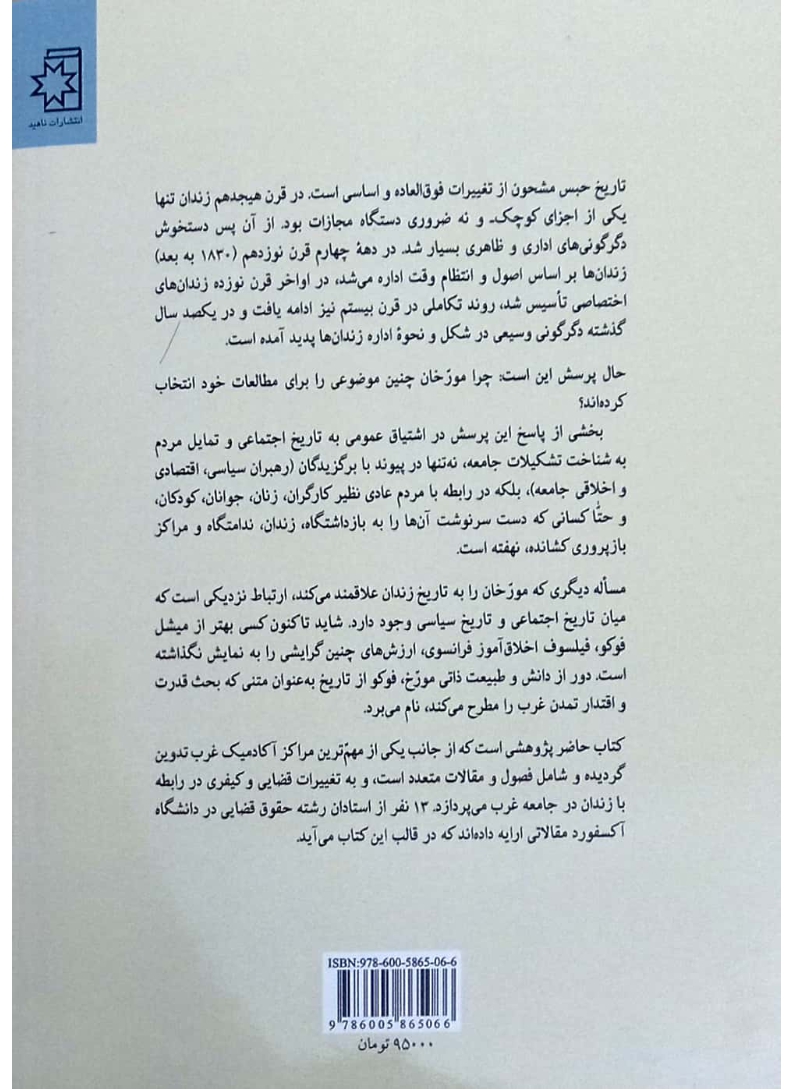 انتشارات ناهید
تاریخ حبس مشحون از تغییرات فوق‌العاده و اساسی است. در قرن هیجدهم زندان تنها
یکی از اجزای کوچک‌ـ و نه ضروری دستگاه مجازات بود. از آن پس دستخوش
دگرگونی‌های اداری و ظاهری بسیار شد. در دههٔ چهارم قرن نوزدهم (۱۸۳۰ به بعد)
زندان‌ها بر اساس اصول و انتظام وقت اداره می‌شد، در اواخر قرن نوزده زندان‌های
اختصاصی تأسیس شد، روند تکاملی در قرن بیستم نیز ادامه یافت و در یکصد سال
گذشته دگرگونی وسیعی در شکل و نحوهٔ اداره زندان‌ها پدید آمده است.
حال پرسش این است: چرا مورّخان چنین موضوعی را برای مطالعات خود انتخاب
کرده‌اند؟
بخشی از پاسخ این پرسش در اشتیاق عمومی به تاریخ اجتماعی و تمایل مردم
به شناخت تشکیلات جامعه، نه‌تنها در پیوند با برگزیدگان (رهبران سیاسی، اقتصادی
و اخلاقی جامعه)، بلکه در رابطه با مردم عادی نظیر کارگران، زنان، جوانان، کودکان،
و حتّا کسانی که دست سرنوشت آن‌ها را به بازداشتگاه، زندان، ندامتگاه و مراکز
بازپروری کشانده، نهفته است.
مسأله دیگری که مورّخان را به تاریخ زندان علاقمند می‌کند، ارتباط نزدیکی است که
میان تاریخ اجتماعی و تاریخ سیاسی وجود دارد. شاید تاکنون کسی بهتر از میشل
فوکو، فیلسوف اخلاق‌آموز فرانسوی، ارزش‌های چنین گرایشی را به نمایش نگذاشته
است. دور از دانش و طبیعت ذاتی مورّخ، فوکو از تاریخ به‌عنوان متنی که بحث قدرت
و اقتدار تمدن غرب را مطرح می‌کند، نام می‌برد.
کتاب حاضر پژوهشی است که از جانب یکی از مهمّ‌ترین مراکز آکادمیک غرب تدوین
گردیده و شامل فصول و مقالات متعدد است، و به تغییرات قضایی و کیفری در رابطه
با زندان در جامعه غرب می‌پردازد. ۱۳ نفر از استادان رشته حقوق قضایی در دانشگاه
آکسفورد مقالاتی ارایه داده‌اند که در قالب این کتاب می‌آید.
ISBN:978-600-5865-06-6
9 786005 865066
۹۵۰۰۰ تومان